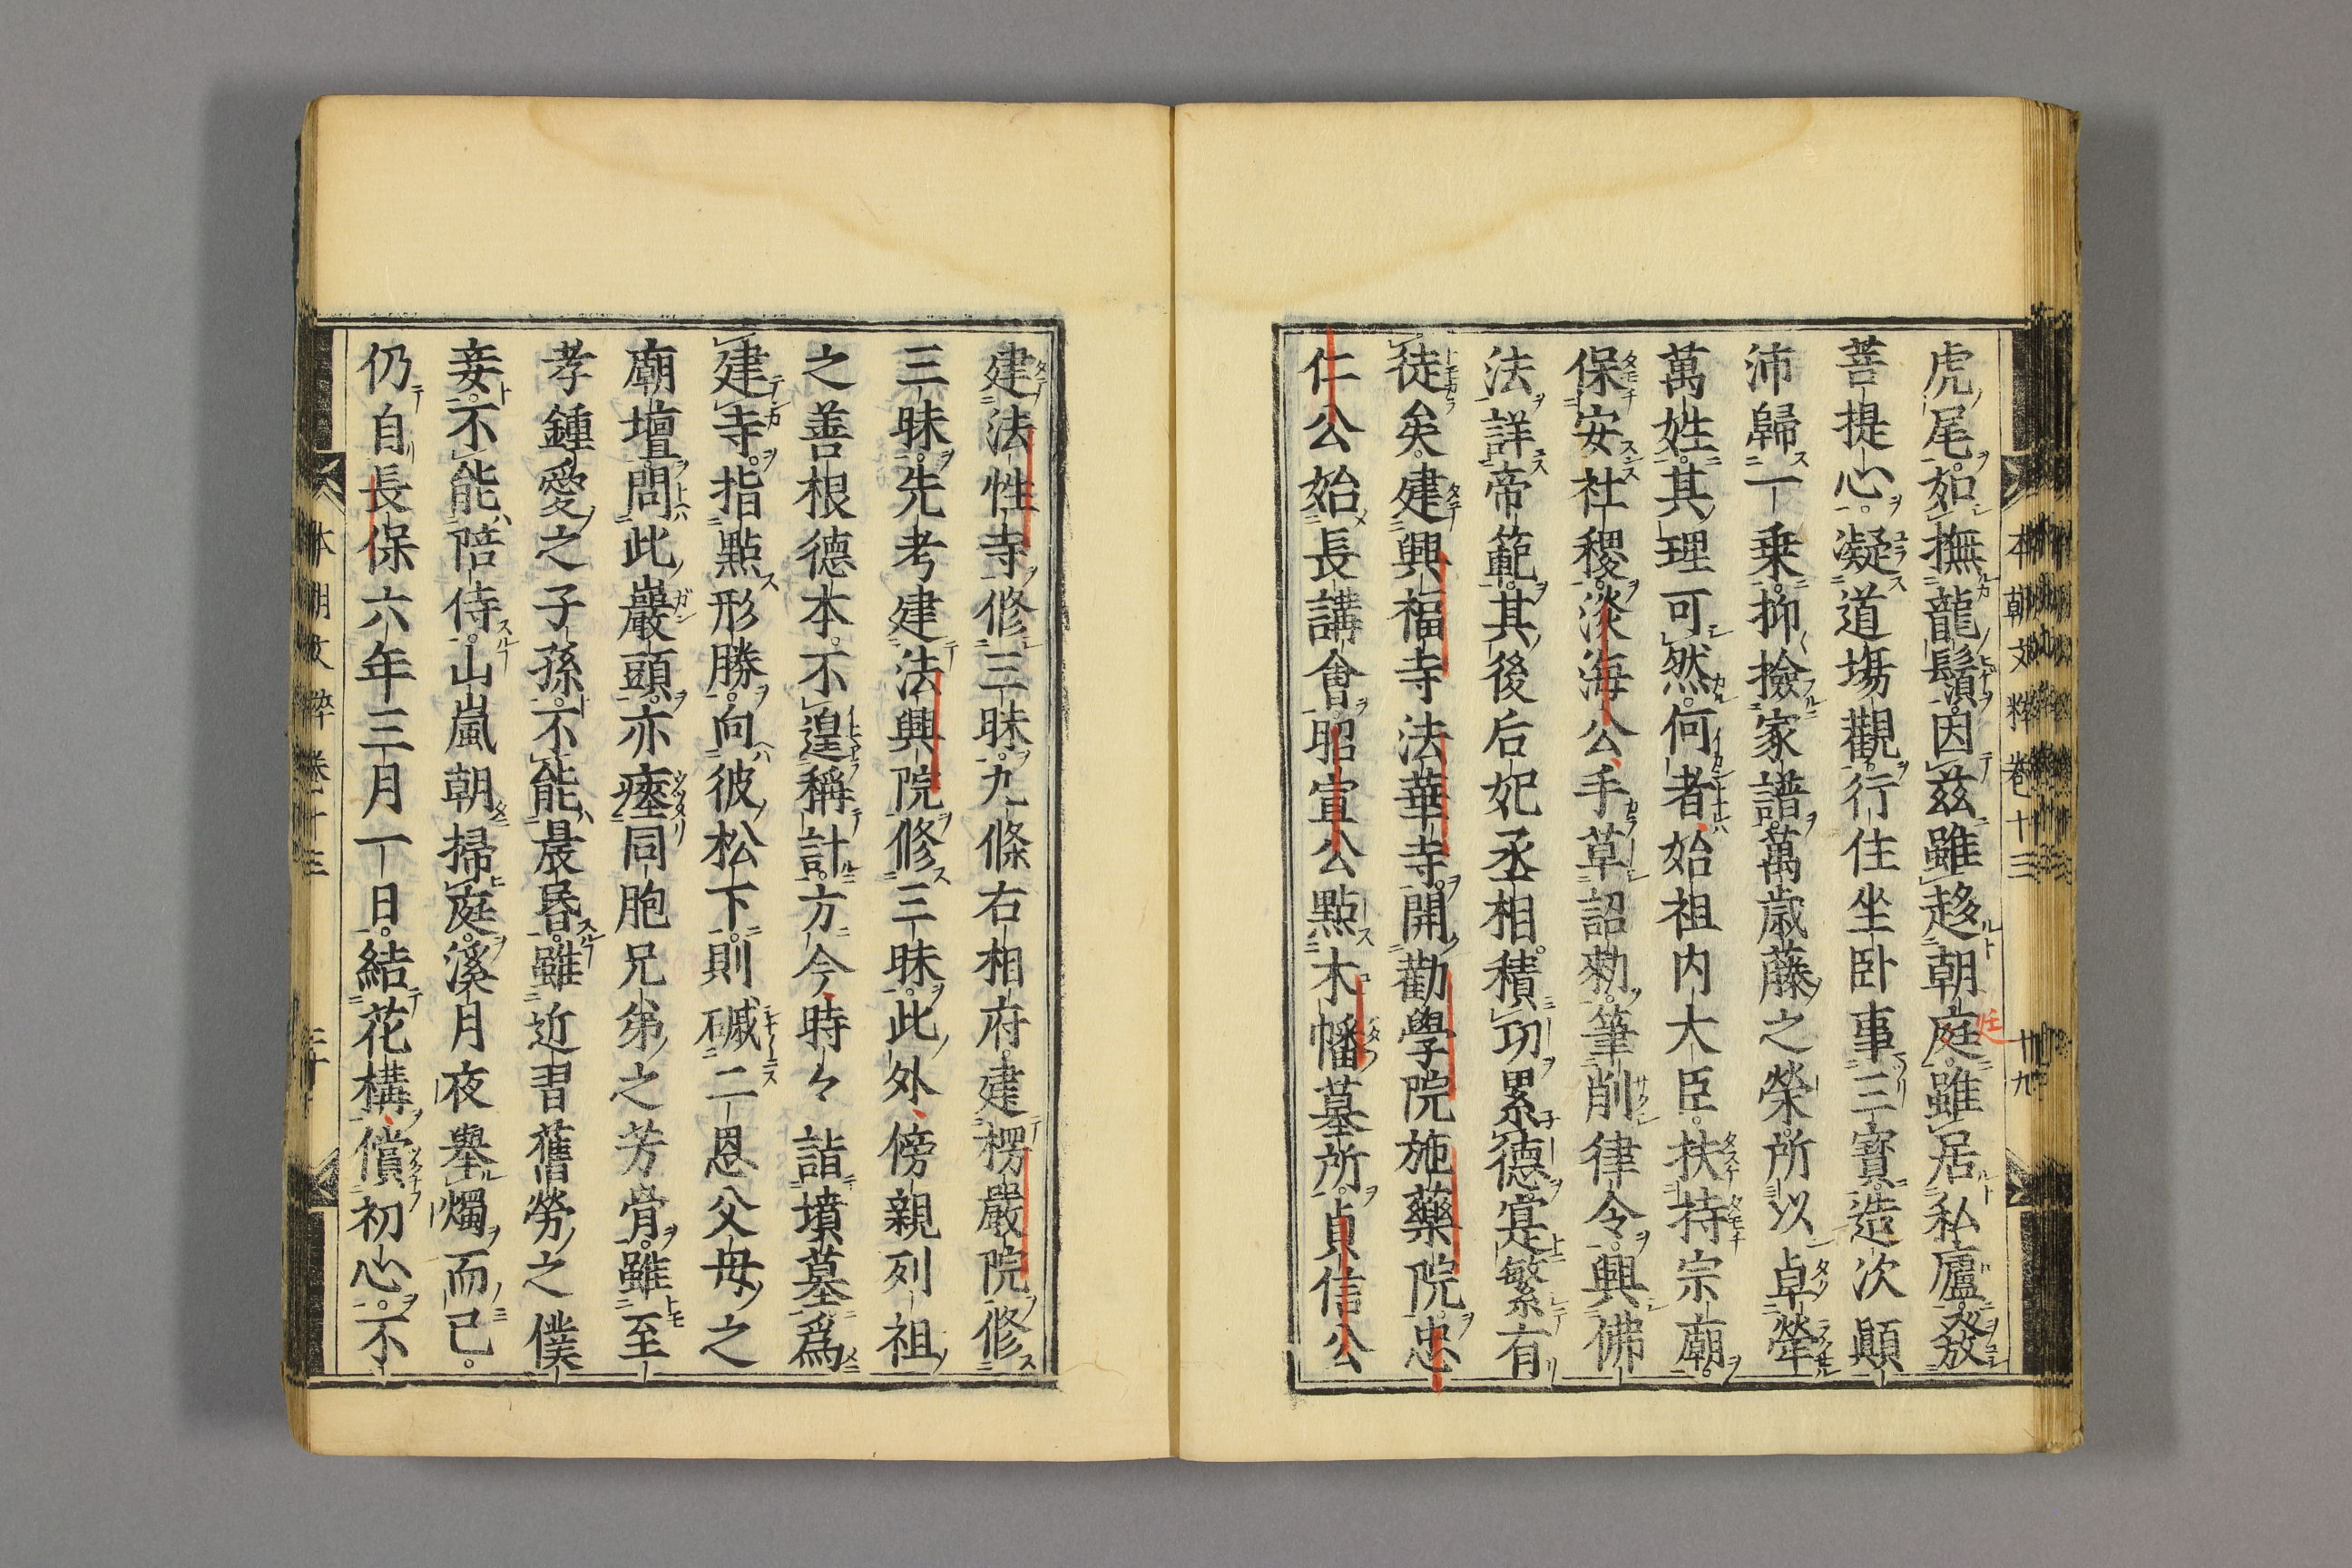 本朝文粹卷十三 廿九
虎尾如撫龍鬚因茲雖趍朝庭雖居私廬發
菩提心凝道塲觀行住坐卧事三寳造次顚
沛歸一乗抑撿家譜萬歳藤之榮所以卓犖
萬姓其理可然何者始祖内大臣扶持宗廟
保安社稷淡海公手草詔勅筆削律令興佛
法詳帝範其後后妃丞相積功累德寔繁有
徒矣建興福寺法華寺開勸學院施藥院忠
仁公始長講會昭宣公點木幡墓所貞信公
建法性寺修三昧九條右相府建楞嚴院修
三昧先考建法興院修三昧此外傍親列祖
之善根德本不遑稱計方今時々詣墳墓爲
建寺指點形勝向彼松下則磩二恩父母之
廟壇問此巖頭亦瘞同胞兄弟之芳骨雖至
孝鍾愛之子孫不能晨昏雖近習舊勞之僕
妾不能陪侍山嵐朝掃庭溪月夜擧燭而已
仍自長保六年三月一日結花構償初心不
本朝文粹卷十三